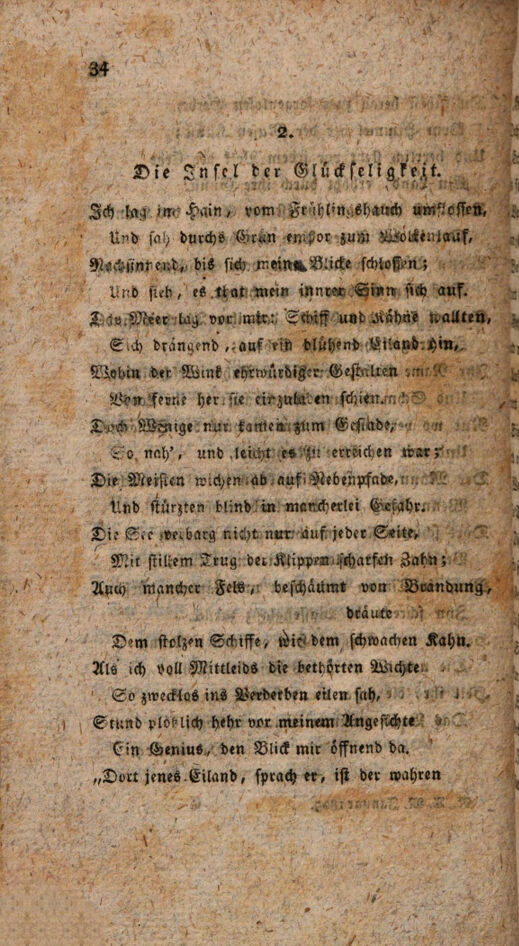 34
2.
Die Insel der Glückseligkeit.
Ich lag im Hain, vom Frühlingshauch umflossen,
Und sah durchs Grün empor zum Wolkenlauf,
Nachsinnend, bis sich meine Blicke schlossen;
Und sieh, es that mein innrer Sinn sich auf.
Das Meer lag vor mir: Schiff und Kähne wallten,
Sich drängend, auf ein blühend Eiland hin,
Wohin der Wink ehrwürdiger Gestalten
Von ferne her sie einzuladen schien.
Doch Wenige nur kamen zum Gestade,
So nah', und leicht es zu erreichen war;
Die Meisten wichen ab auf Nebenpfade,
Und stürzten blind in mancherlei Gefahr.
Die See verbarg nicht nur auf jeder Seite,
Mit stillem Trug der Klippen scharfen Zahn;
Auch mancher Fels, beschäumt von Brandung,
dräute
Dem stolzen Schiffe, wie dem schwachen Kahn.
Als ich voll Mittleids die bethörten Wichte
So zwecklos ins Verderben eilen sah,
Stund plötzlich hehr vor meinem Angesichte
Ein Genius, den Blick mir öffnend da.
„Dort jenes Eiland, sprach er, ist der wahren